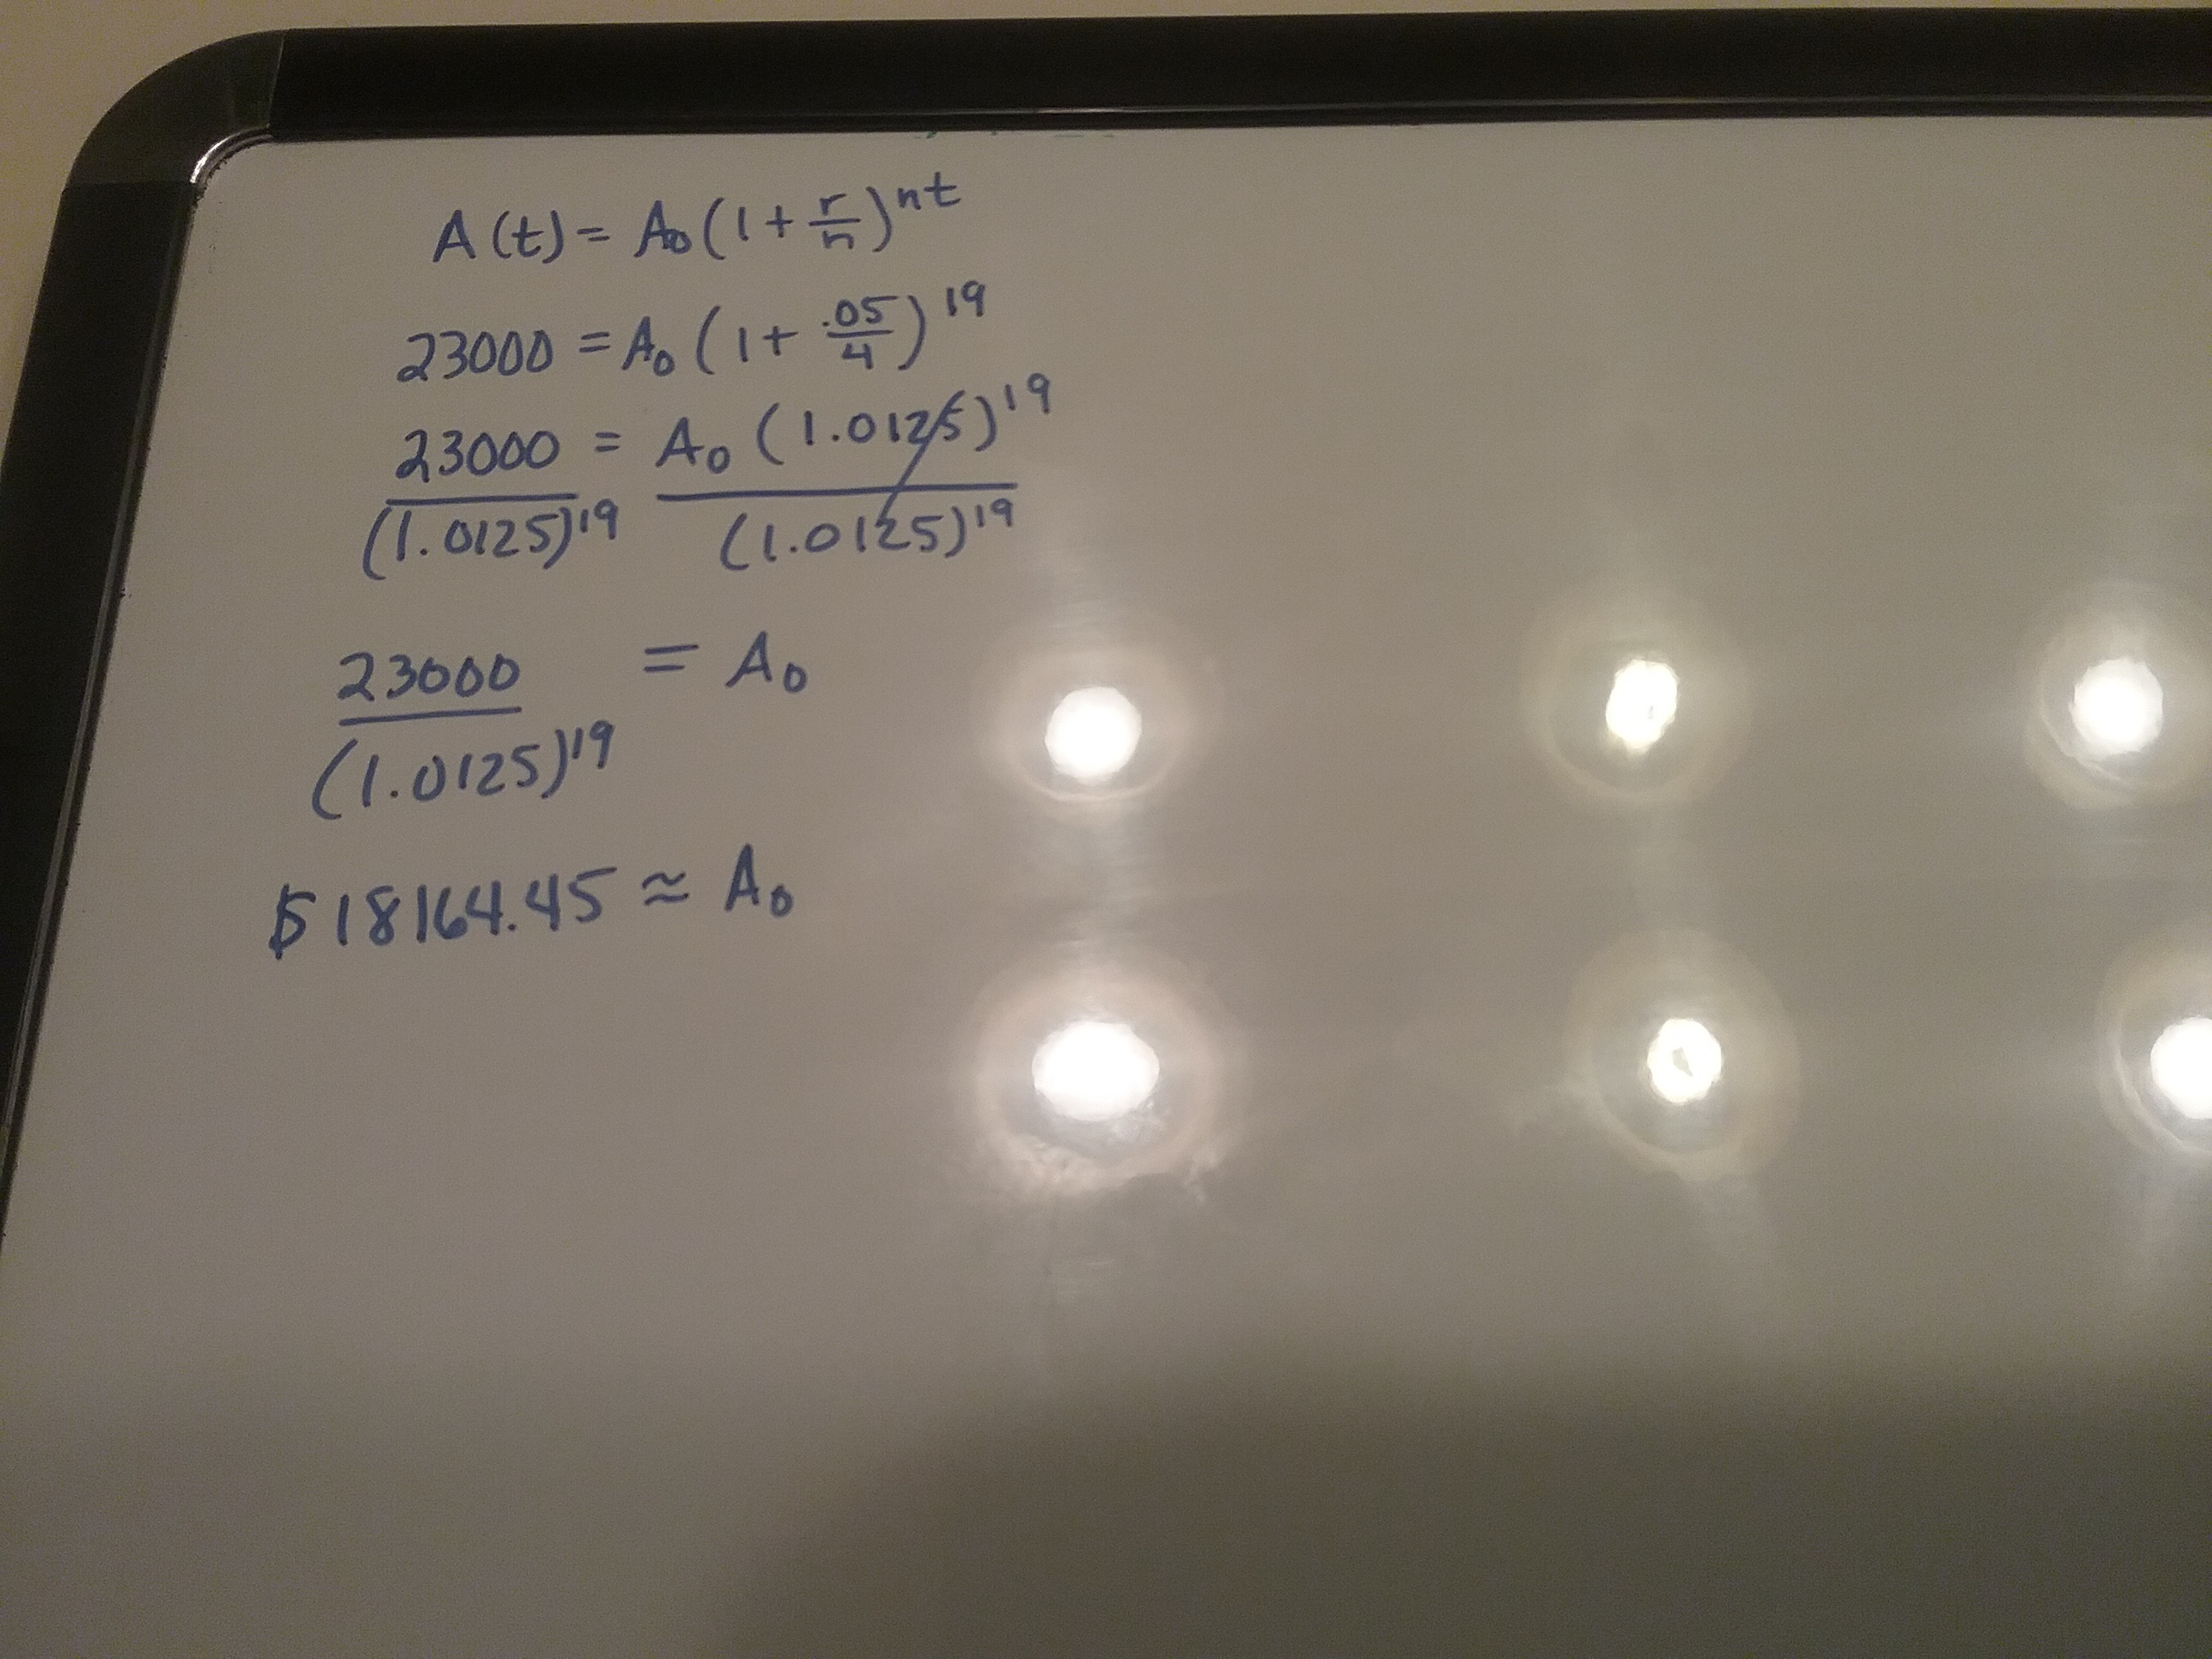 A(t) = A₀(1 + r/n)^nt
23000 = A₀(1 + .05/4)^19
23000/(1.0125)^19 = A₀(1.0125)^19/(1.0125)^19
23000/(1.0125)^19 = A₀
$18164.45 ≈ A₀